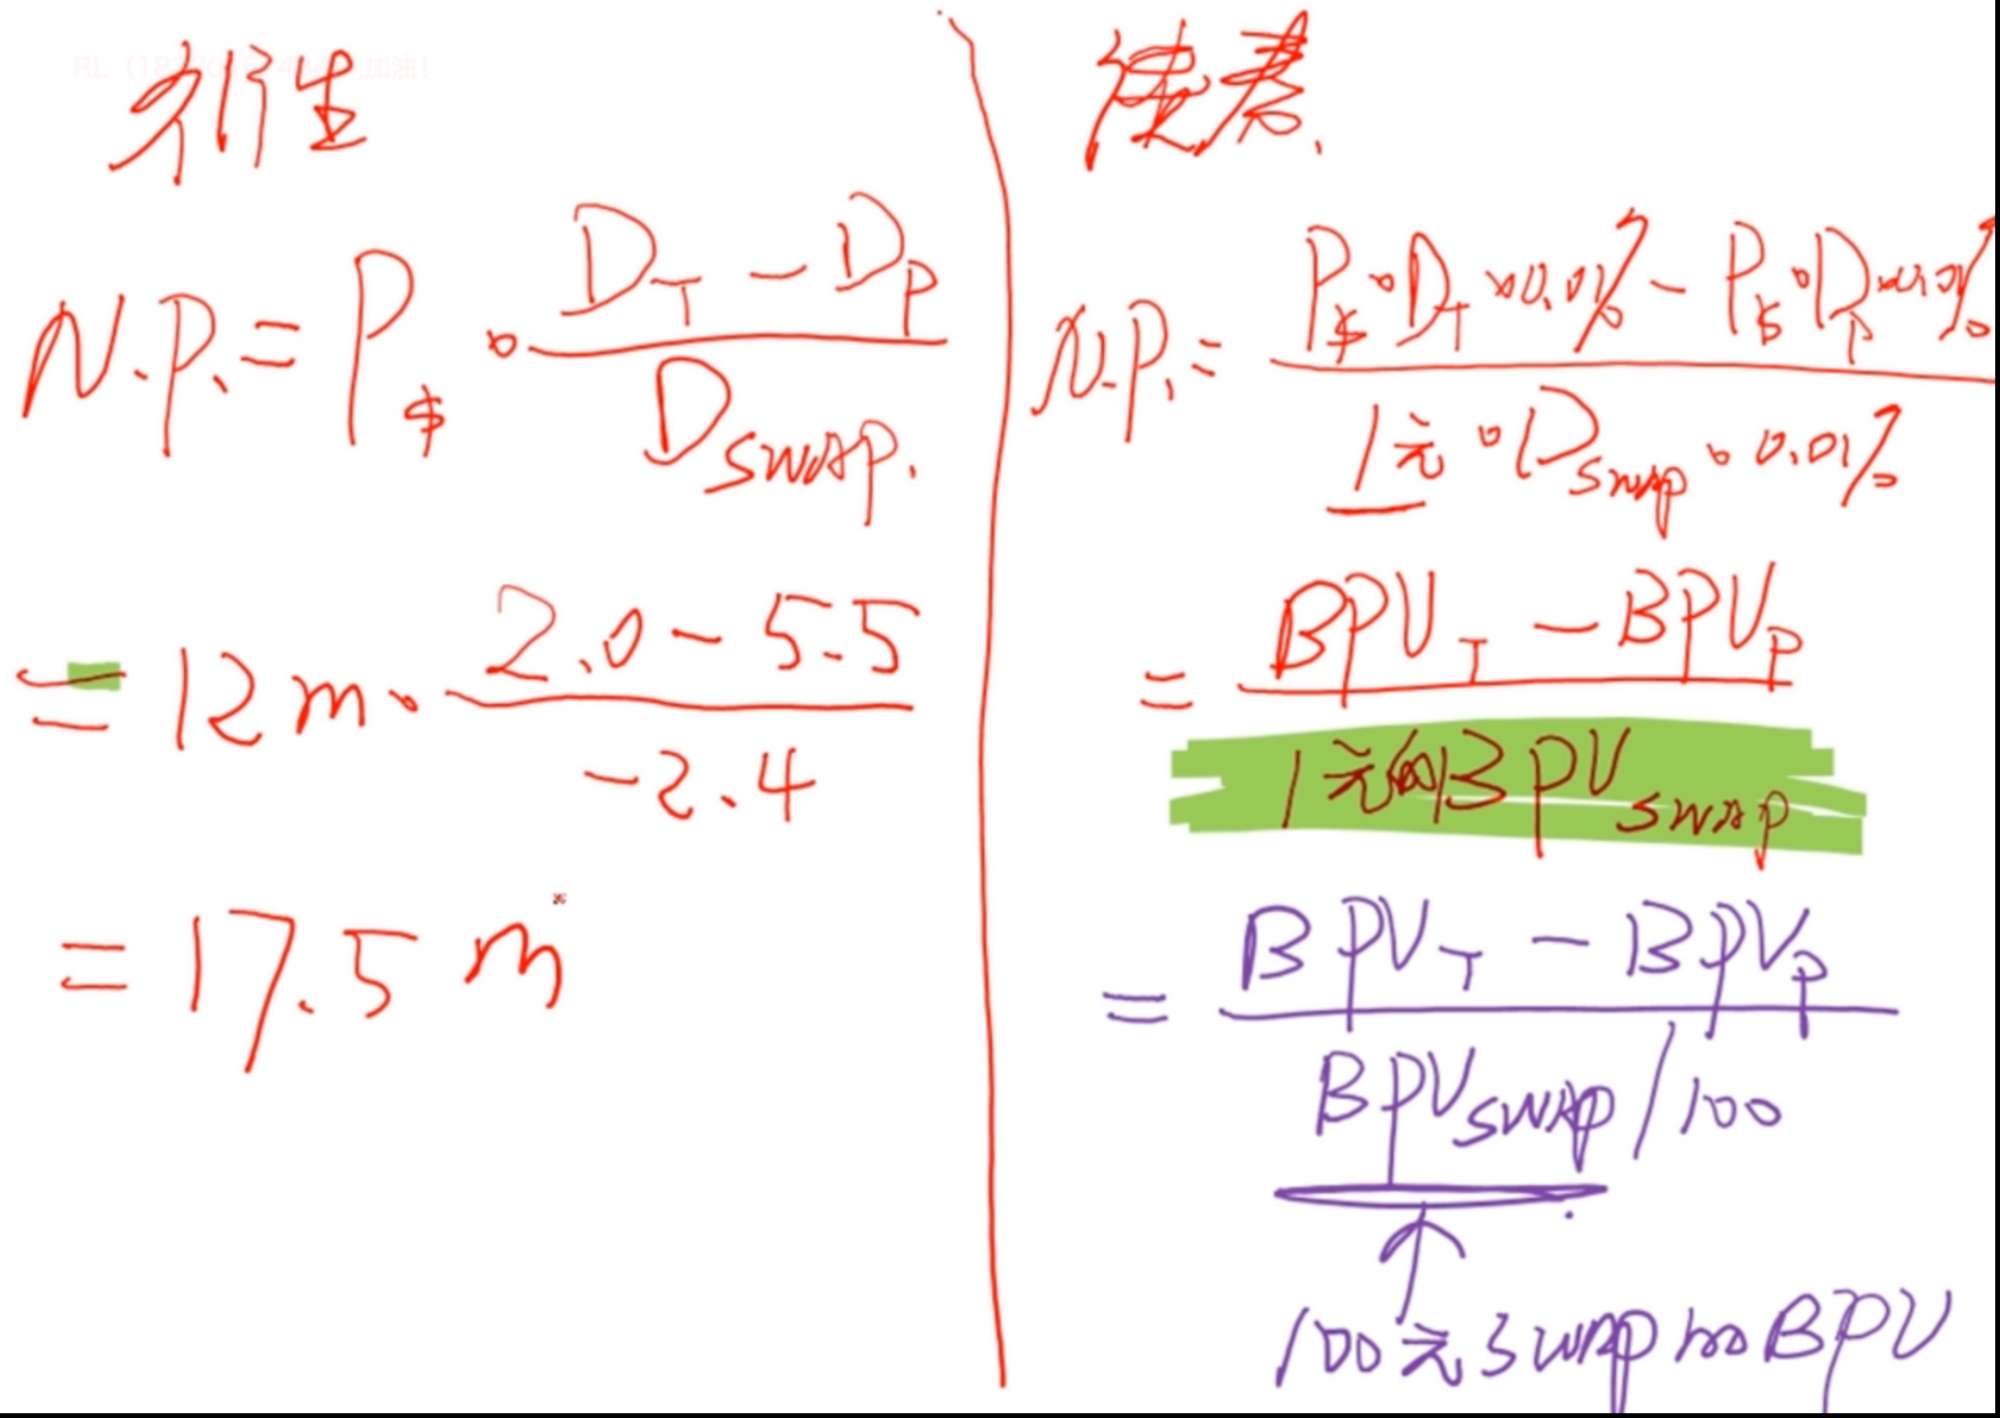 衍生
N.P. = P$ · (D_T - D_P) / D_SWAP.
= 12m · (2.0 - 5.5) / -2.4
= 17.5m
N.P. = (P$ · D_T × 0.01% - P$ · D_P × 0.01%) / (1元 · D_swap · 0.01%)
= (BPV_T - BPV_P) / 1元的BPV_swap
= (BPV_T - BPV_P) / (BPV_swap / 100)
100元 swap 的 BPV